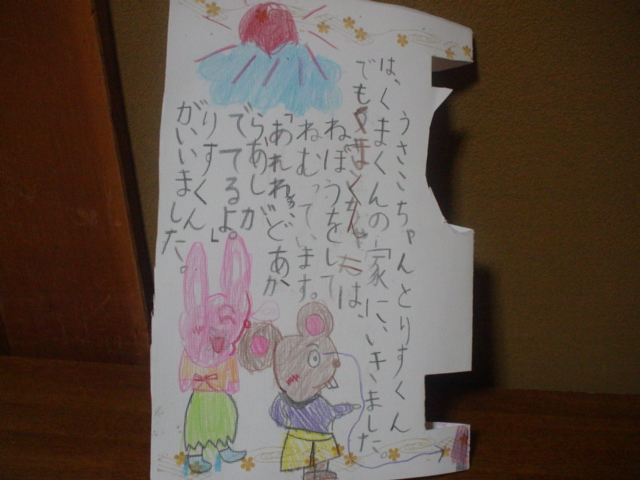 うさこちゃんとりすくん
は、くまくんの家に、いきました。
でも、くまくんは、
ねぼうをして
ねむっています。
「あれれ、どあか
ら、あしが
でてるよ。」
りすくん
がいいました。